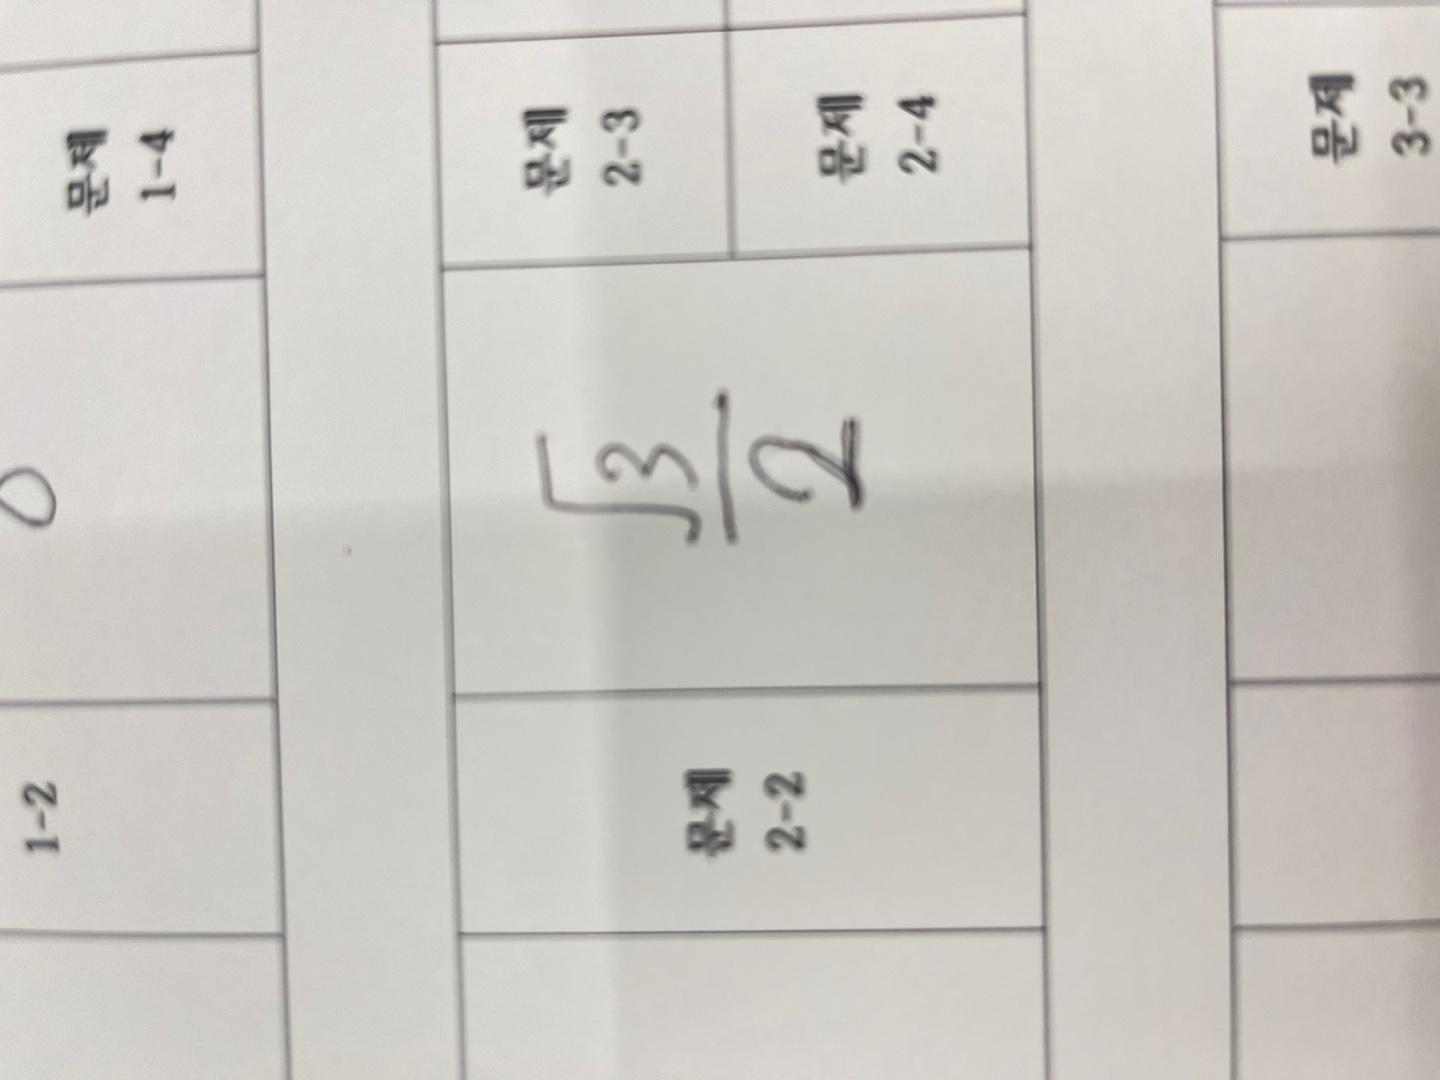 1-2
문제
1-4
문제
2-2
√3/2
문제
2-3
문제
2-4
문제
3-3